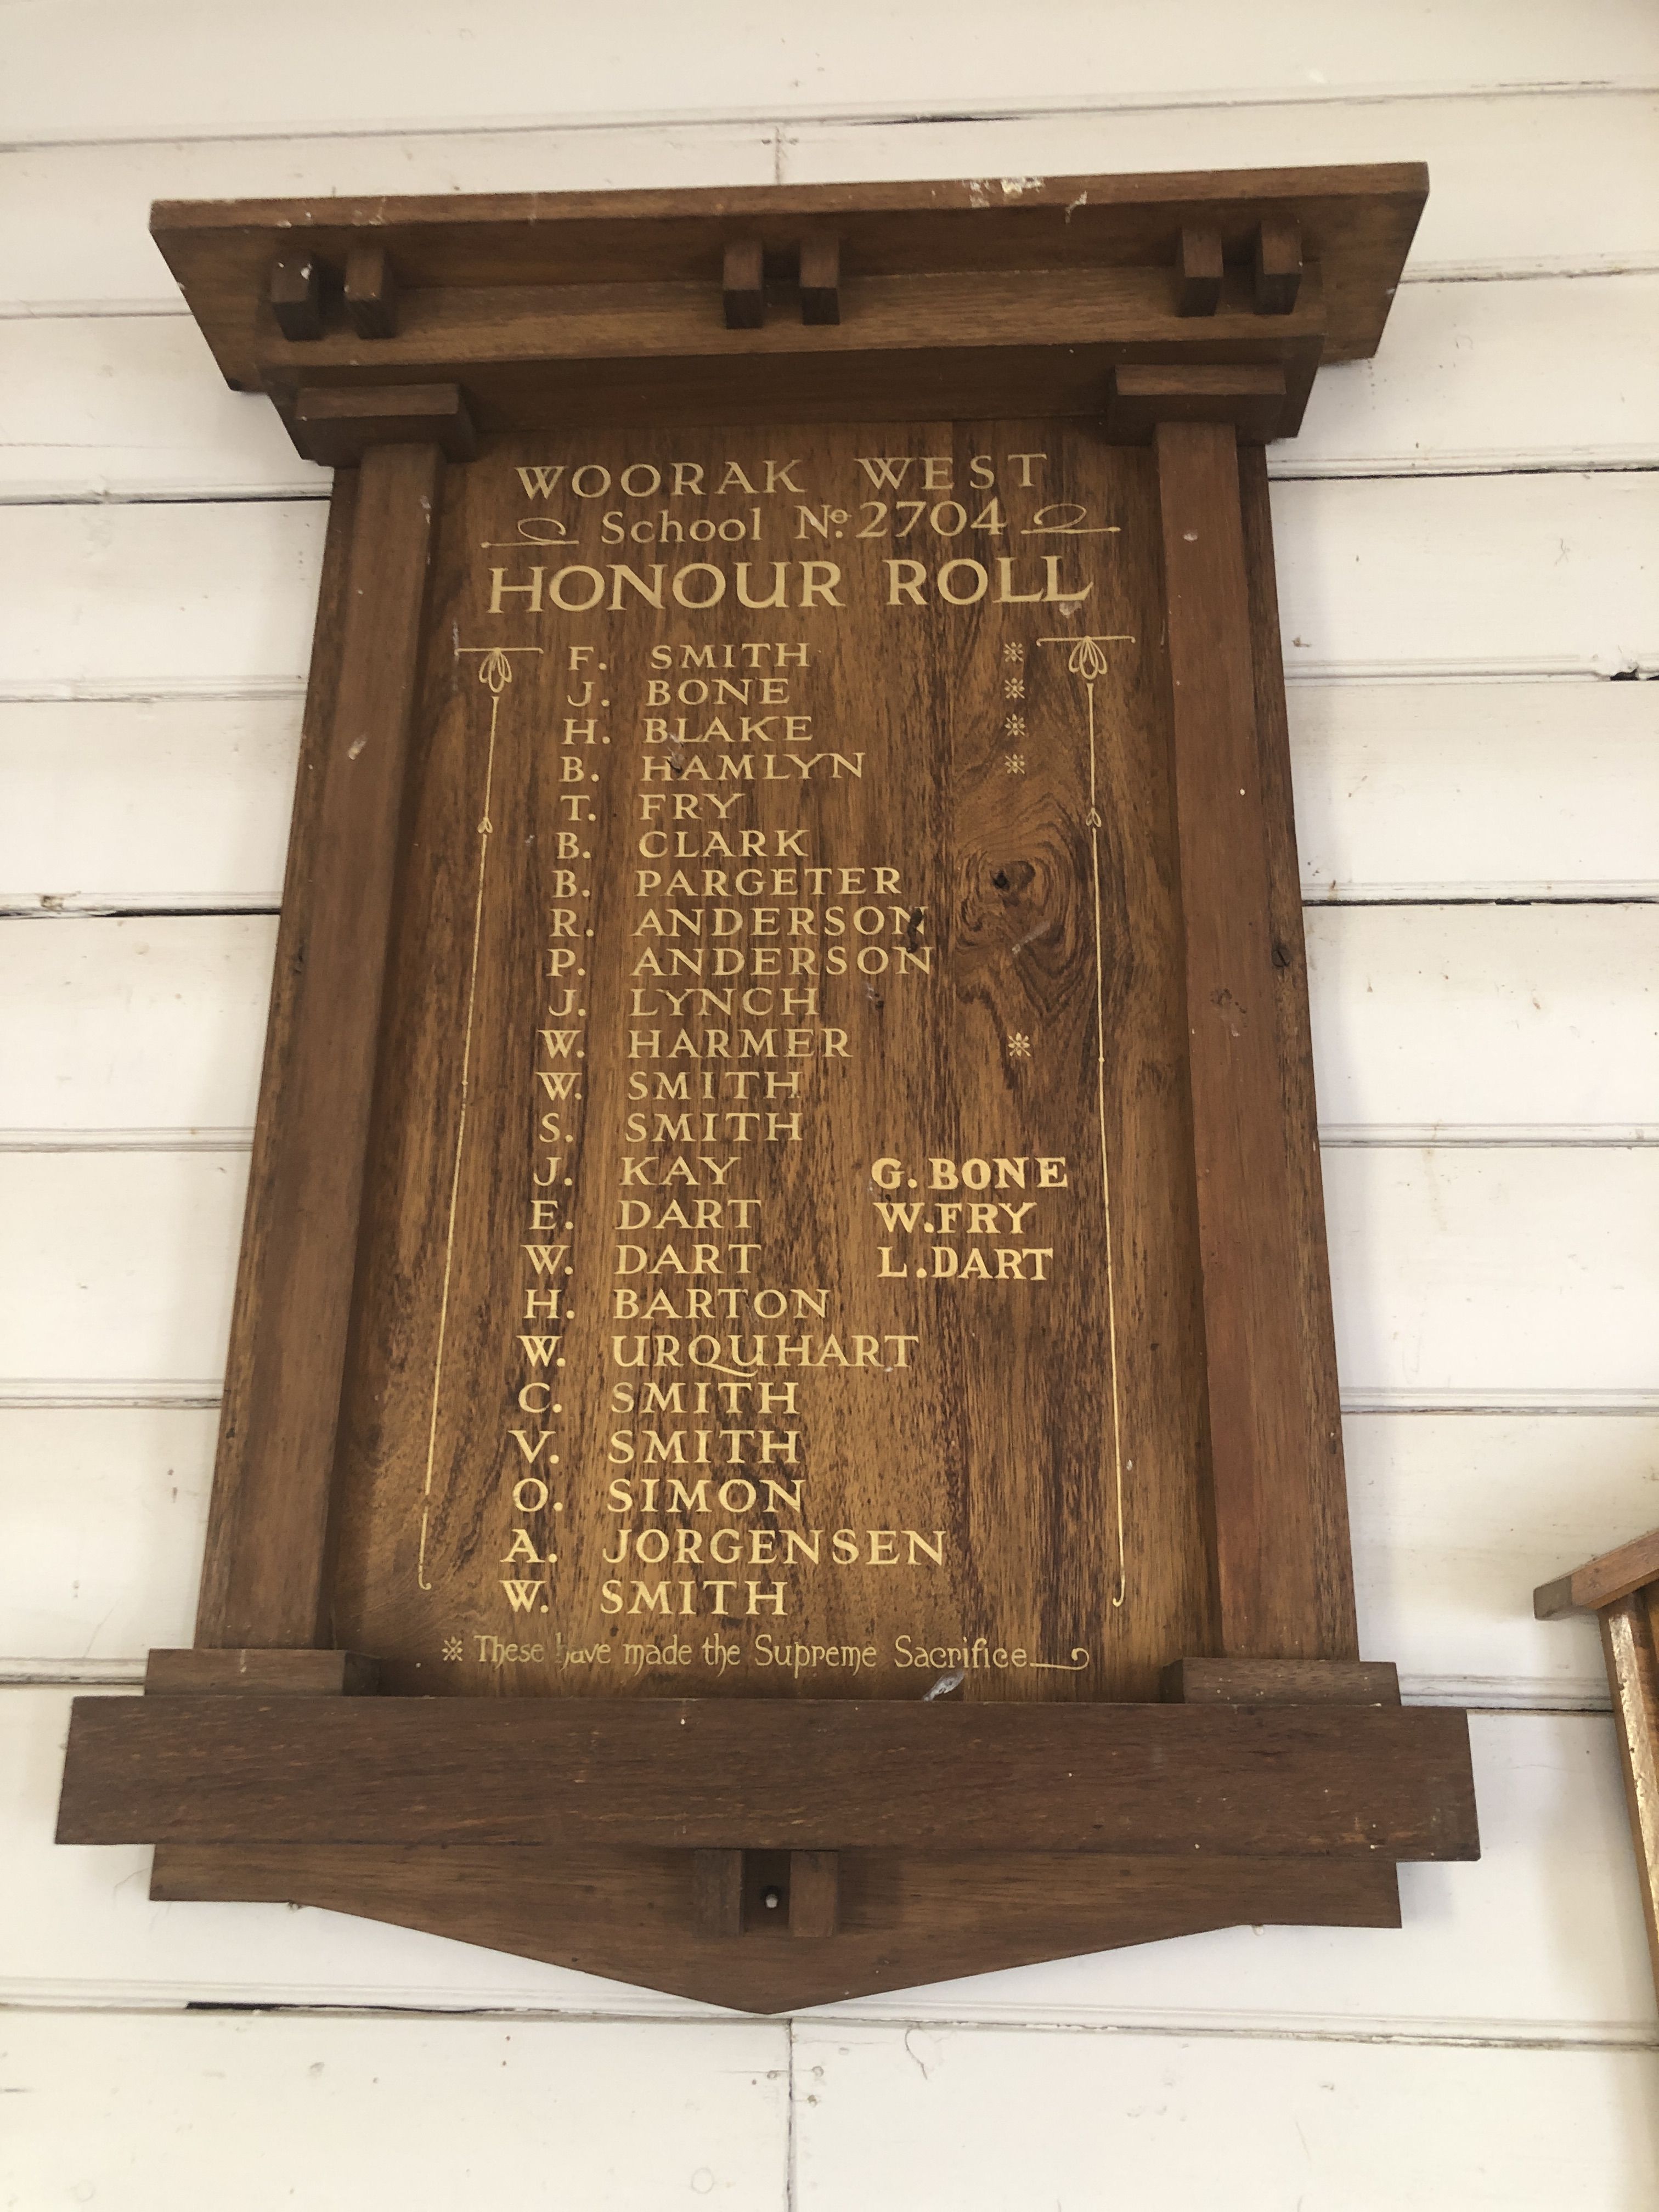 WOORAK WEST
School No. 2704
HONOUR ROLL
F. SMITH ※
J. BONE ※
H. BLAKE ※
B. HAMLYN ※
T. FRY
B. CLARK
B. PARGETER
R. ANDERSON
P. ANDERSON
J. LYNCH
W. HARMER ※
W. SMITH
S. SMITH
J. KAY G. BONE
E. DART W. FRY
W. DART L. DART
H. BARTON
W. URQUHART
C. SMITH
V. SMITH
O. SIMON
A. JORGENSEN
W. SMITH
※ These have made the Supreme Sacrifice